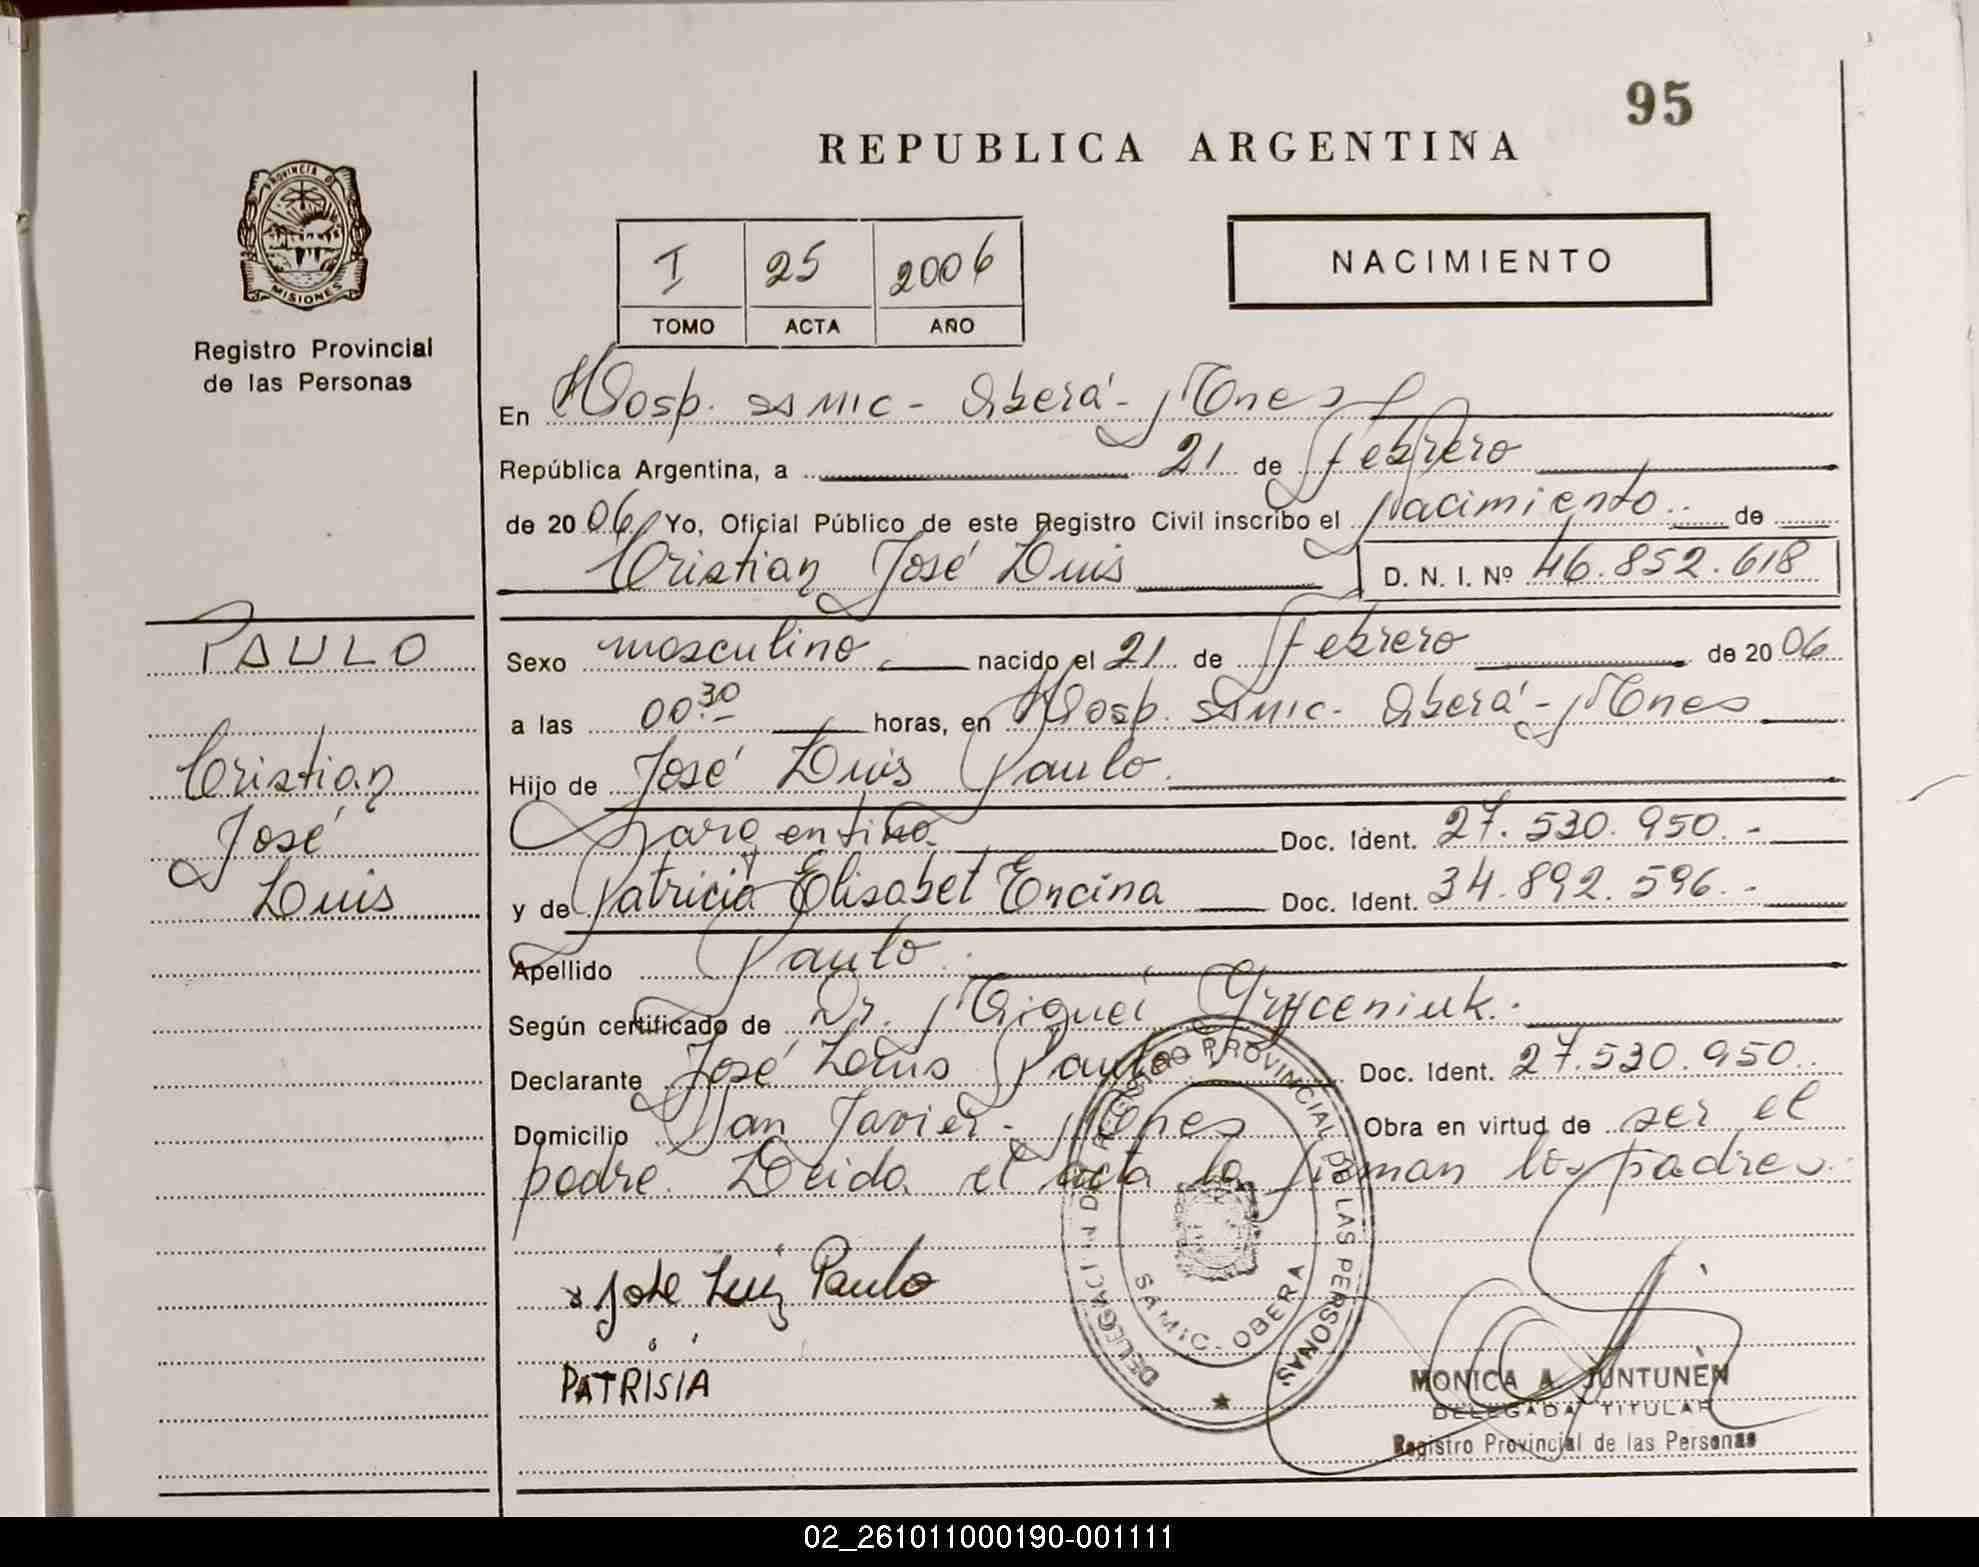 95
REPUBLICA ARGENTINA
PROVINCIA DE
MISIONES
Registro Provincial
de las Personas
I 25 2006
TOMO ACTA AÑO
NACIMIENTO
En Hosp. SAMIC - Oberá - Mnes
República Argentina, a 21 de febrero
de 2006 Yo, Oficial Público de este Registro Civil inscribo el nacimiento de
Cristian José Luis D. N. I. Nº 46.852.618
PAULO
Cristian
José
Luis
Sexo masculino nacido el 21 de febrero de 2006
a las 00:30 horas, en Hosp. SAMIC - Oberá - Mnes
Hijo de José Luis Paulo
argentino Doc. Ident. 27.530.950.-
y de Patricia Elisabet Encina Doc. Ident. 34.892.596.-
Apellido Paulo
Según certificado de Dr. Miguel Gryceniuk.
Declarante José Luis Paulo Doc. Ident. 27.530.950.
Domicilio San Javier - Mnes Obra en virtud de ser el
padre. Leida el acta la firman los padres.
x Jose Luiz Paulo
PATRISIA
REGISTRO PROVINCIAL DE LAS PERSONAS
SAMIC. OBERA
MONICA A. JUNTUNEN
DELEGADA TITULAR
Registro Provincial de las Personas
02_261011000190-001111